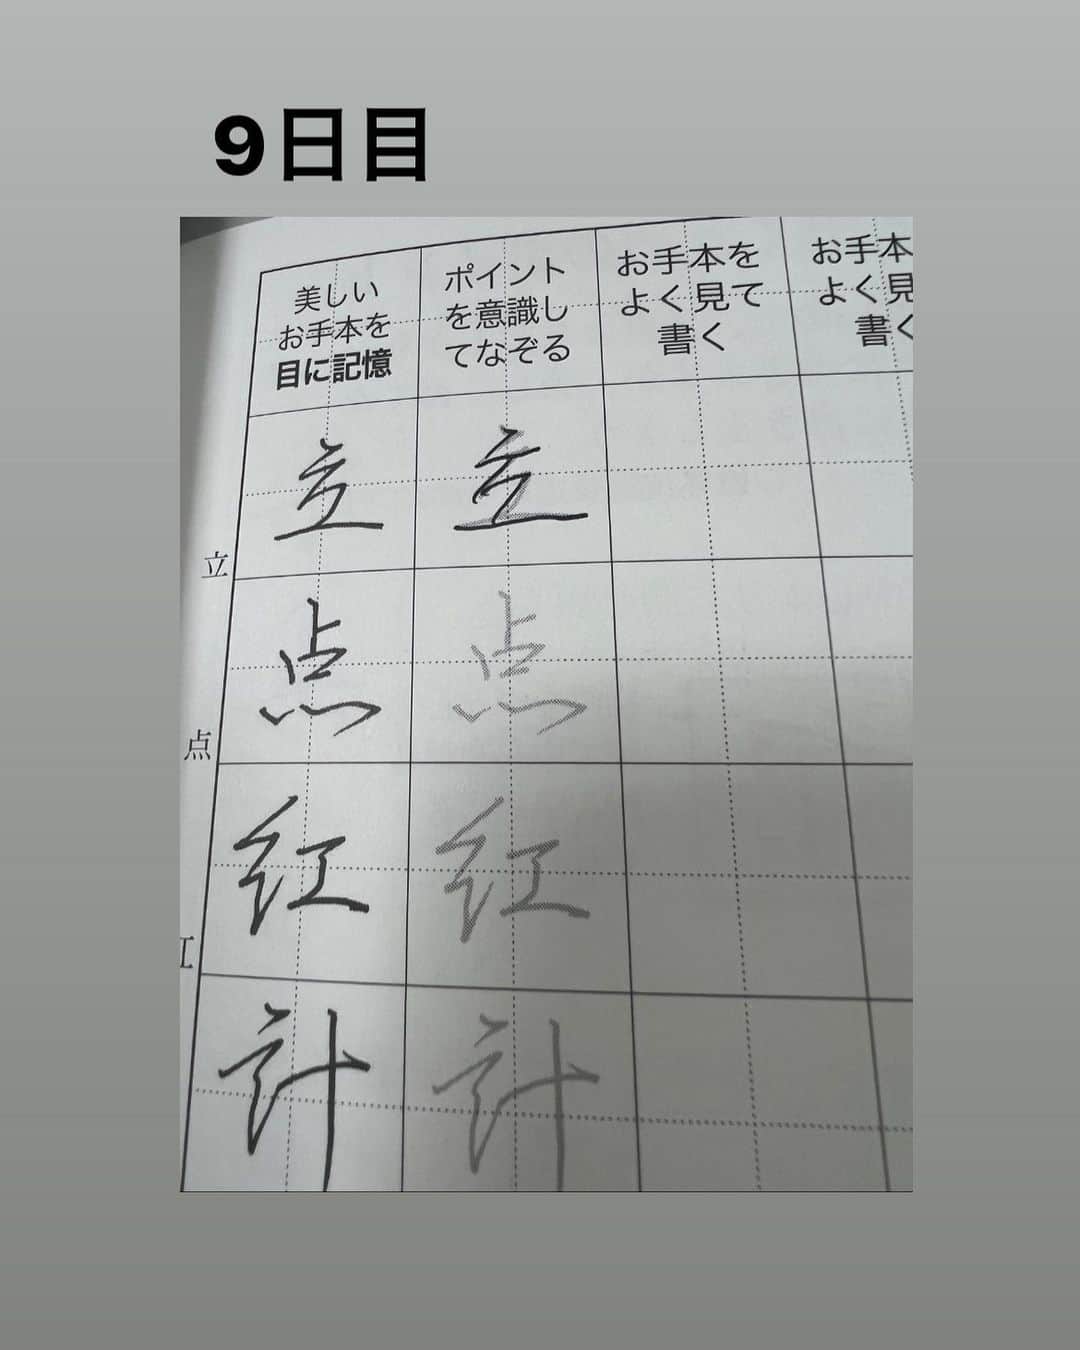 9日目
美しい
お手本を
目に記憶
ポイント
を意識し
てなぞる
お手本を
よく見て
書く
お手本
よく見
書く
立
立
立
点
点
点
紅
紅
工
計
計